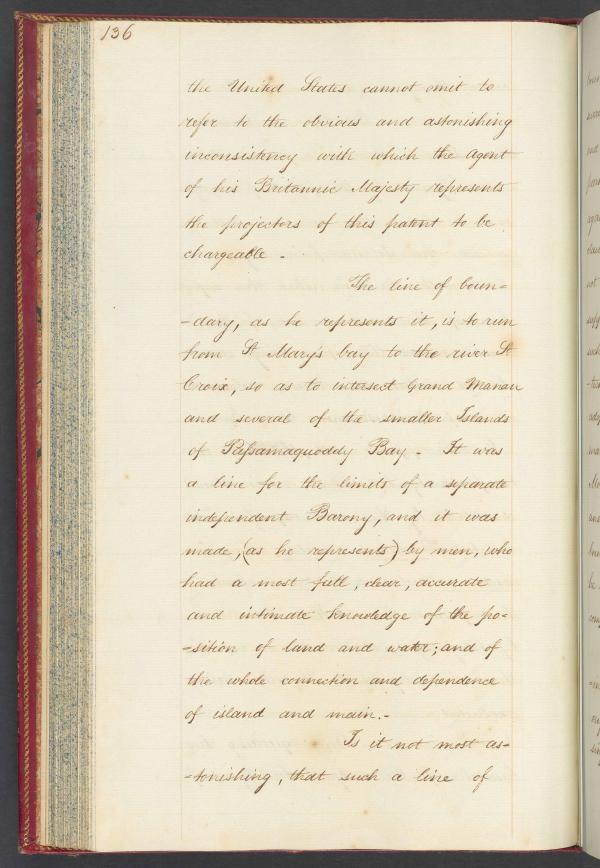 136
the United States cannot omit to
refer to the obvious and astonishing
inconsistency with which the agent
of his Britannic Majesty represents
the projectors of this patent to be
chargeable -
The line of boun=
-dary, as he represents it, is to run
from St Mary's bay to the river St
Croix, so as to intersect Grand Manan
and several of the smaller Islands
of Passamaquoddy Bay - It was
a line for the limits of a separate
independent Barony, and it was
made, (as he represents) by men, who
had a most full, clear, accurate
and intimate knowledge of the po=
-sition of land and water; and of
the whole connection and dependence
of island and main.-
Is it not most as-
-tonishing, that such a line of